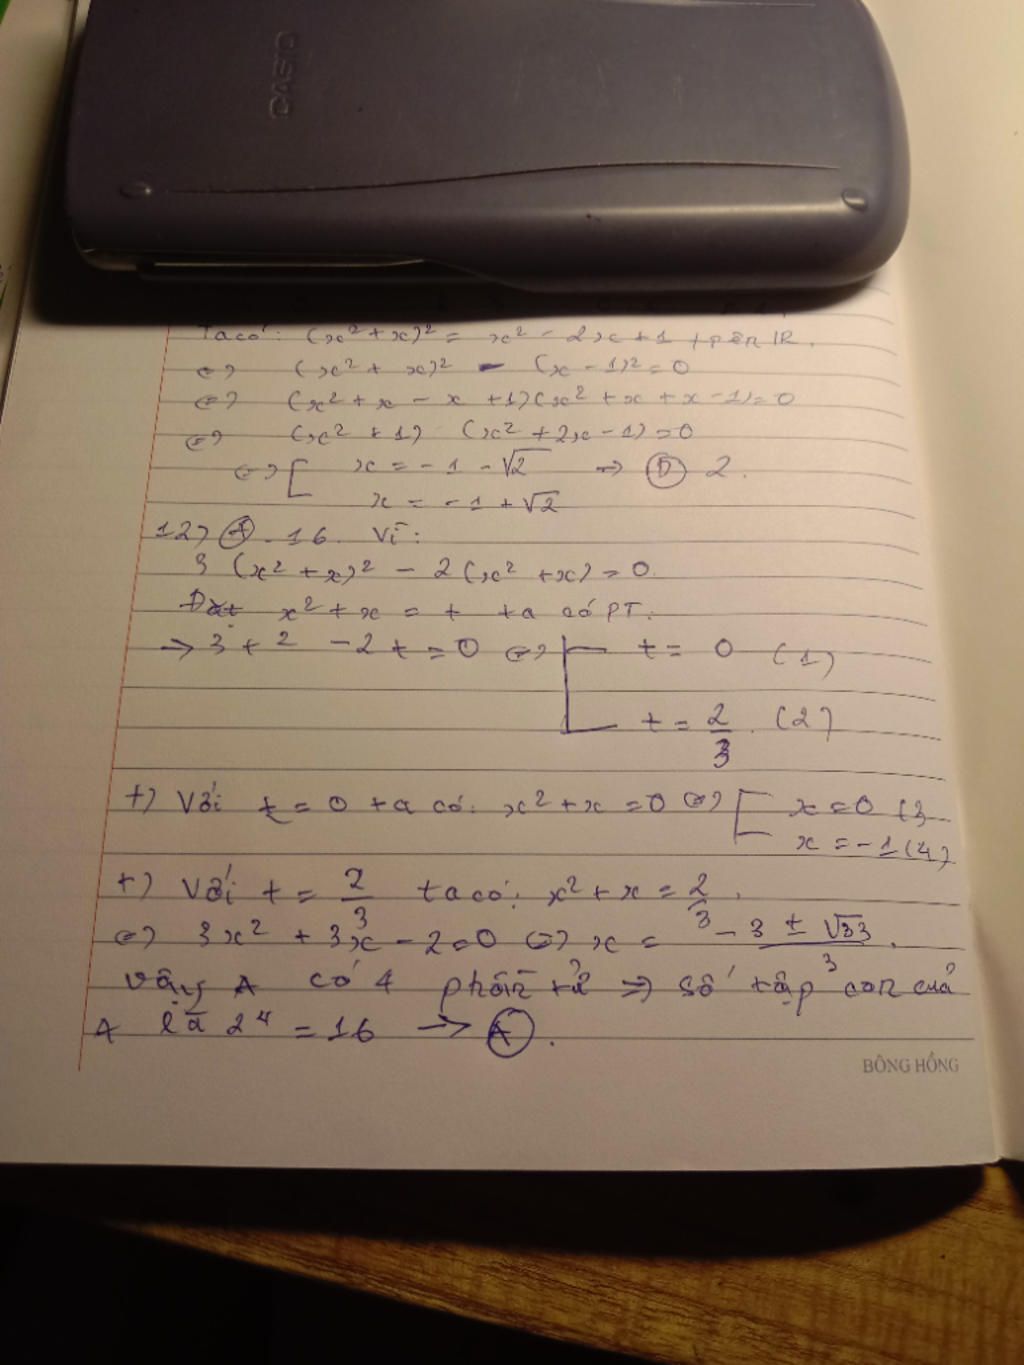 CASIO
Ta có: (x² + x)² = x² - 2x + 1 trên IR.
<=> (x² + x)² - (x - 1)² = 0
<=> (x² + x - x + 1)(x² + x + x - 1) = 0
<=> (x² + 1) (x² + 2x - 1) = 0
<=> [ x = -1 - √2 → (D) 2.
x = -1 + √2
12) (A). 16. Vì:
3 (x² + x)² - 2(x² + x) = 0.
Đặt x² + x = t ta có PT:
→ 3t² - 2t = 0 <=> [ t = 0 (1)
t = 2/3. (2)
+) Với t = 0 ta có: x² + x = 0 <=> [ x = 0 (3
x = -1 (4)
+) Với t = 2/3 ta có: x² + x = 2/3.
<=> 3x² + 3x - 2 = 0 <=> x = (-3 ± √33)/3.
Vậy A có 4 phần tử => số tập con của
A là 2⁴ = 16 → (A).
BÔNG HỒNG